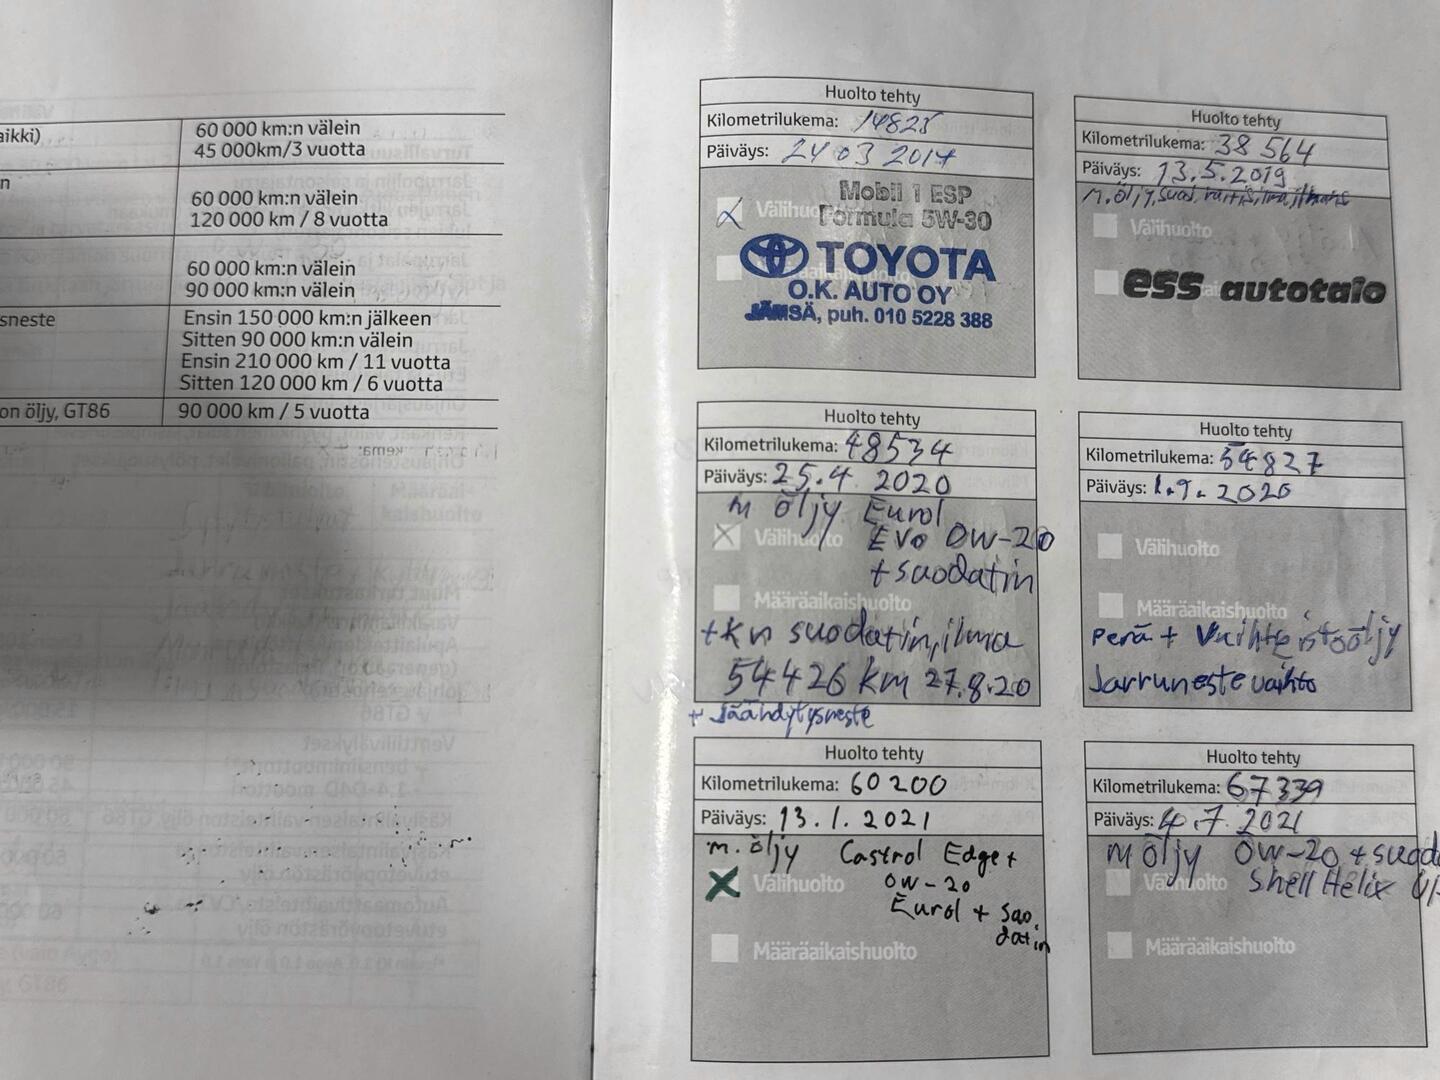 aikki)
60 000 km:n välein
45 000km/3 vuotta
n
60 000 km:n välein
120 000 km / 8 vuotta
60 000 km:n välein
90 000 km:n välein
sneste
Ensin 150 000 km:n jälkeen
Sitten 90 000 km:n välein
Ensin 210 000 km / 11 vuotta
Sitten 120 000 km / 6 vuotta
on öljy, GT86
90 000 km / 5 vuotta
Huolto tehty
Kilometrilukema: 14825
Päiväys: 24 03 2014
Mobil 1 ESP
Välihuolto
Formula 5W-30
TOYOTA
O.K. AUTO OY
JÄMSÄ, puh. 010 5228 388
Huolto tehty
Kilometrilukema: 38 564
Päiväys: 13.5.2019
m.öljy, suod,
Välihuolto
ess autotalo
Huolto tehty
Kilometrilukema: 48534
Päiväys: 25.4 2020
m öljy Eurol
Välihuolto Evo 0W-20
+ suodatin
Määräaikaishuolto
+ kn suodatin, ilma
54426 km 27.8.20
+ Jäähdytysneste
Huolto tehty
Kilometrilukema: 54827
Päiväys: 1.9.2020
Välihuolto
Määräaikaishuolto
Perä + Vaihteistoöljy
Jarruneste vaihto
Huolto tehty
Kilometrilukema: 60200
Päiväys: 13.1.2021
m. öljy Castrol Edge +
Välihuolto 0W-20
Eurol + Suo
datin
Määräaikaishuolto
Huolto tehty
Kilometrilukema: 67339
Päiväys: 4.7.2021
m öljy 0W-20 + suoda
Välihuolto Shell Helix Ul
Määräaikaishuolto